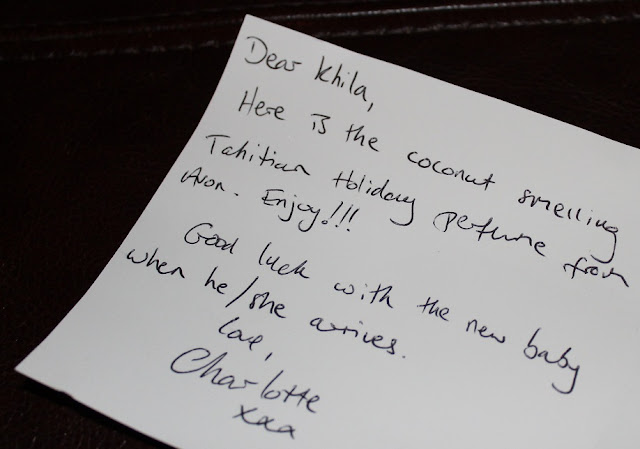 Dear Khila,
Here is the coconut smelling
Tahitian Holiday perfume from
Avon. Enjoy!!!
Good luck with the new baby
when he/she arrives.
love,
Charlotte
xxx